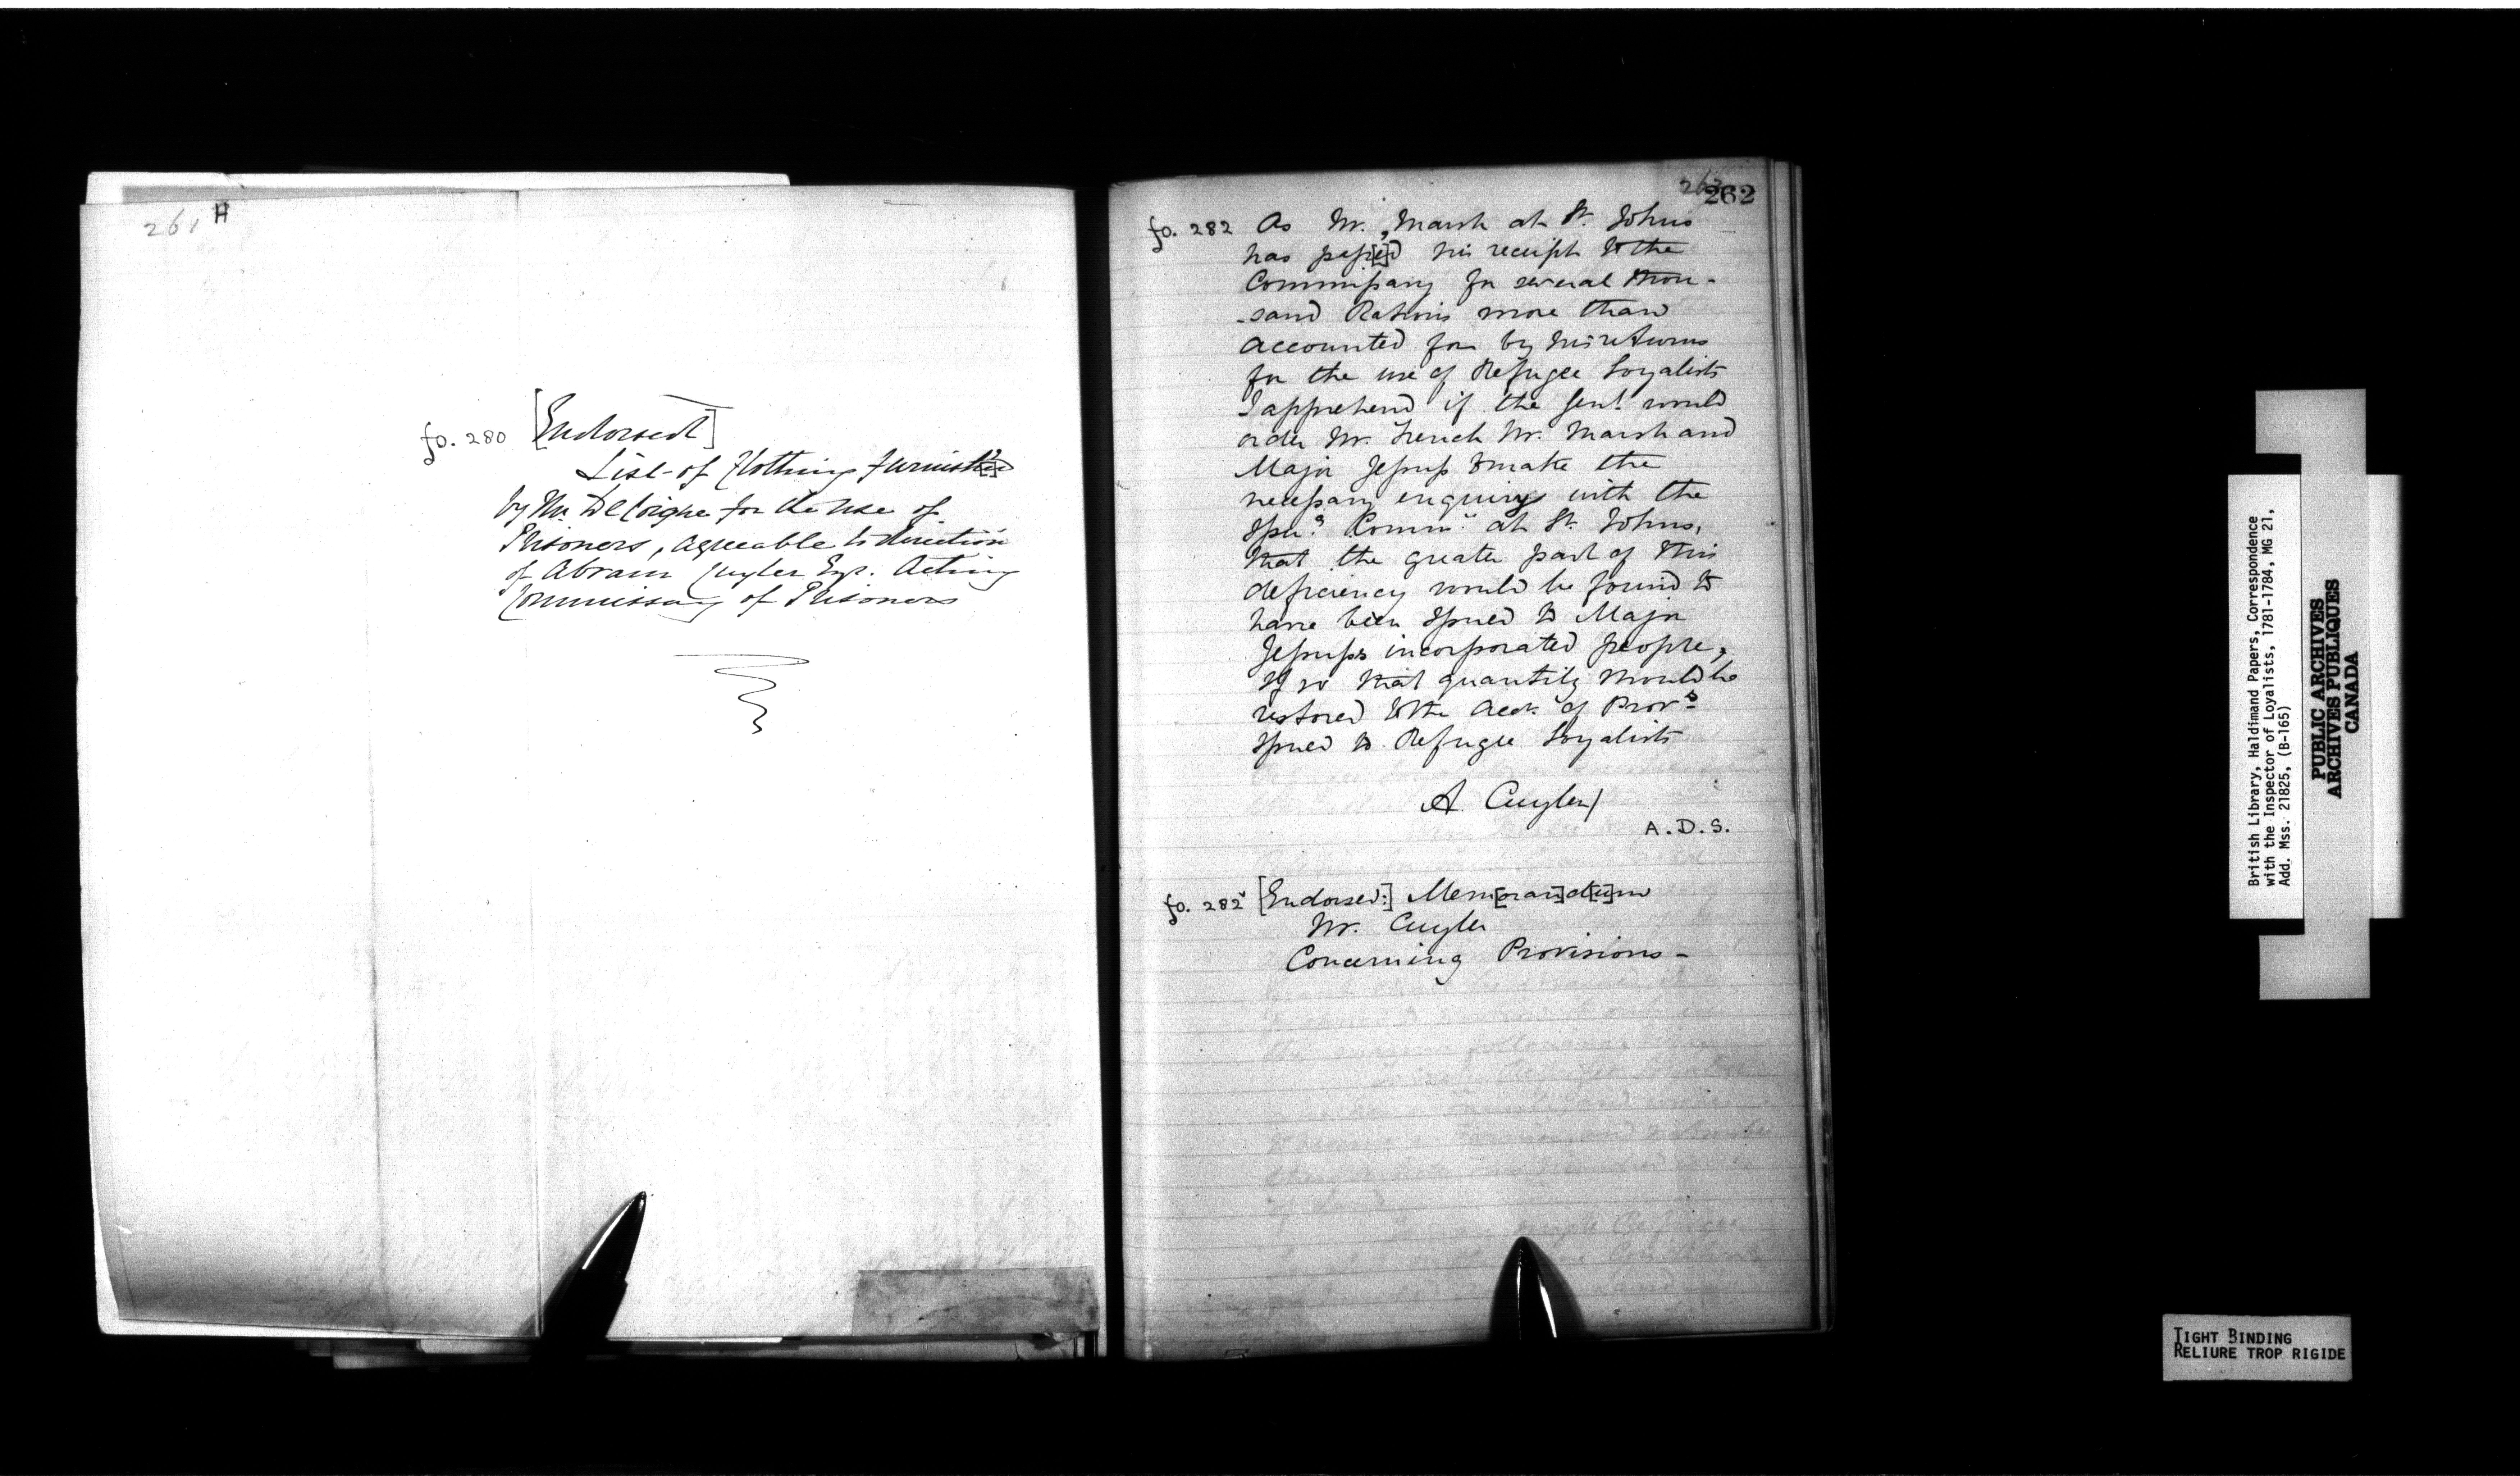 261 H
fo. 280 [Endorsed]
List of Clothing furnish[e]d
by Mr. DeCoigne for the use of
Prisoners, agreeable to direction
of Abram Cuyler Esqr. Acting
Commissary of Prisoners
262
fo. 282 As Mr. Marsh at St. Johns
has pass[e]d his receipt to the
Commissary for several thou-
-sand Rations more than
accounted for by his returns
for the use of Refugee Loyalists
I apprehend if the Genl. would
order Mr. French Mr. Marsh and
Major Jessup to make the
necessary enquirys with the
Comm. at St. Johns,
that the greater part of this
deficiency would be found to
have been Issued to Major
Jessups incorporated people,
If so that quantity should be
restored to the Acct. of Provs
Issued to Refugee Loyalists
A. Cuyler/
A.D.S.
fo. 282v [Endorsed:] Mem[oran]d[u]m
Mr. Cuyler
Concerning Provisions-
British Library, Haldimand Papers, Correspondence
with the Inspector of Loyalists, 1781-1784, MG 21,
Add. Mss. 21825, (B-165)
PUBLIC ARCHIVES
ARCHIVES PUBLIQUES
CANADA
TIGHT BINDING
RELIURE TROP RIGIDE